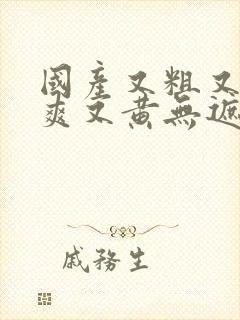 國產又粗又
爽又黃無遮
戚務生